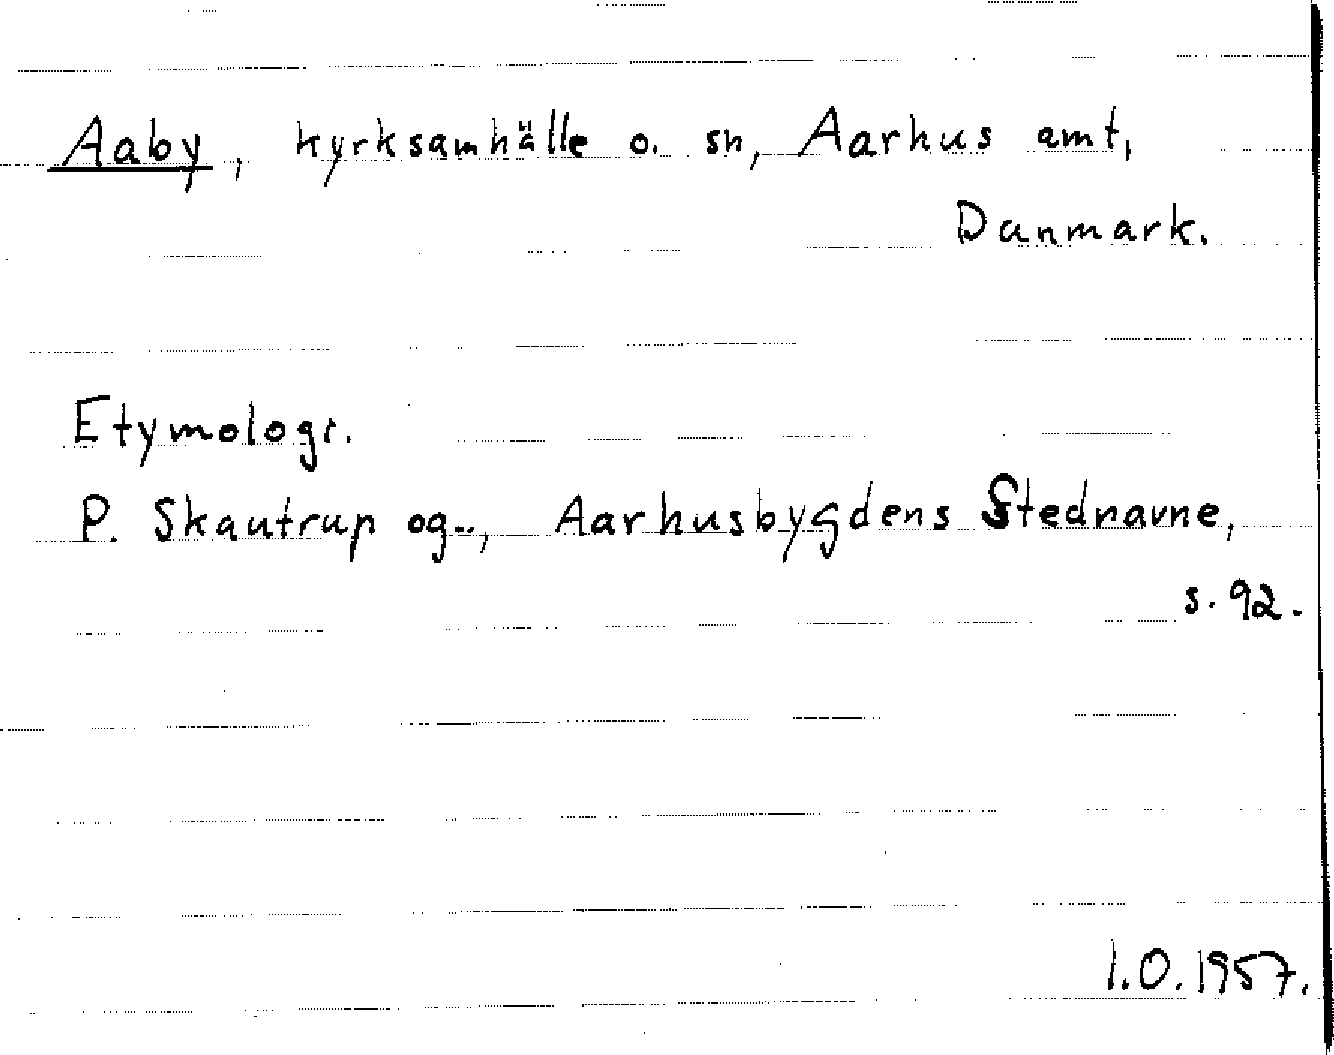 Aaby, kyrksamhälle o. sn, Aarhus amt,
Danmark.
Etymologi.
P. Skautrup og.., Aarhusbygdens Stednavne,
s. 92.
I.O. 1957.